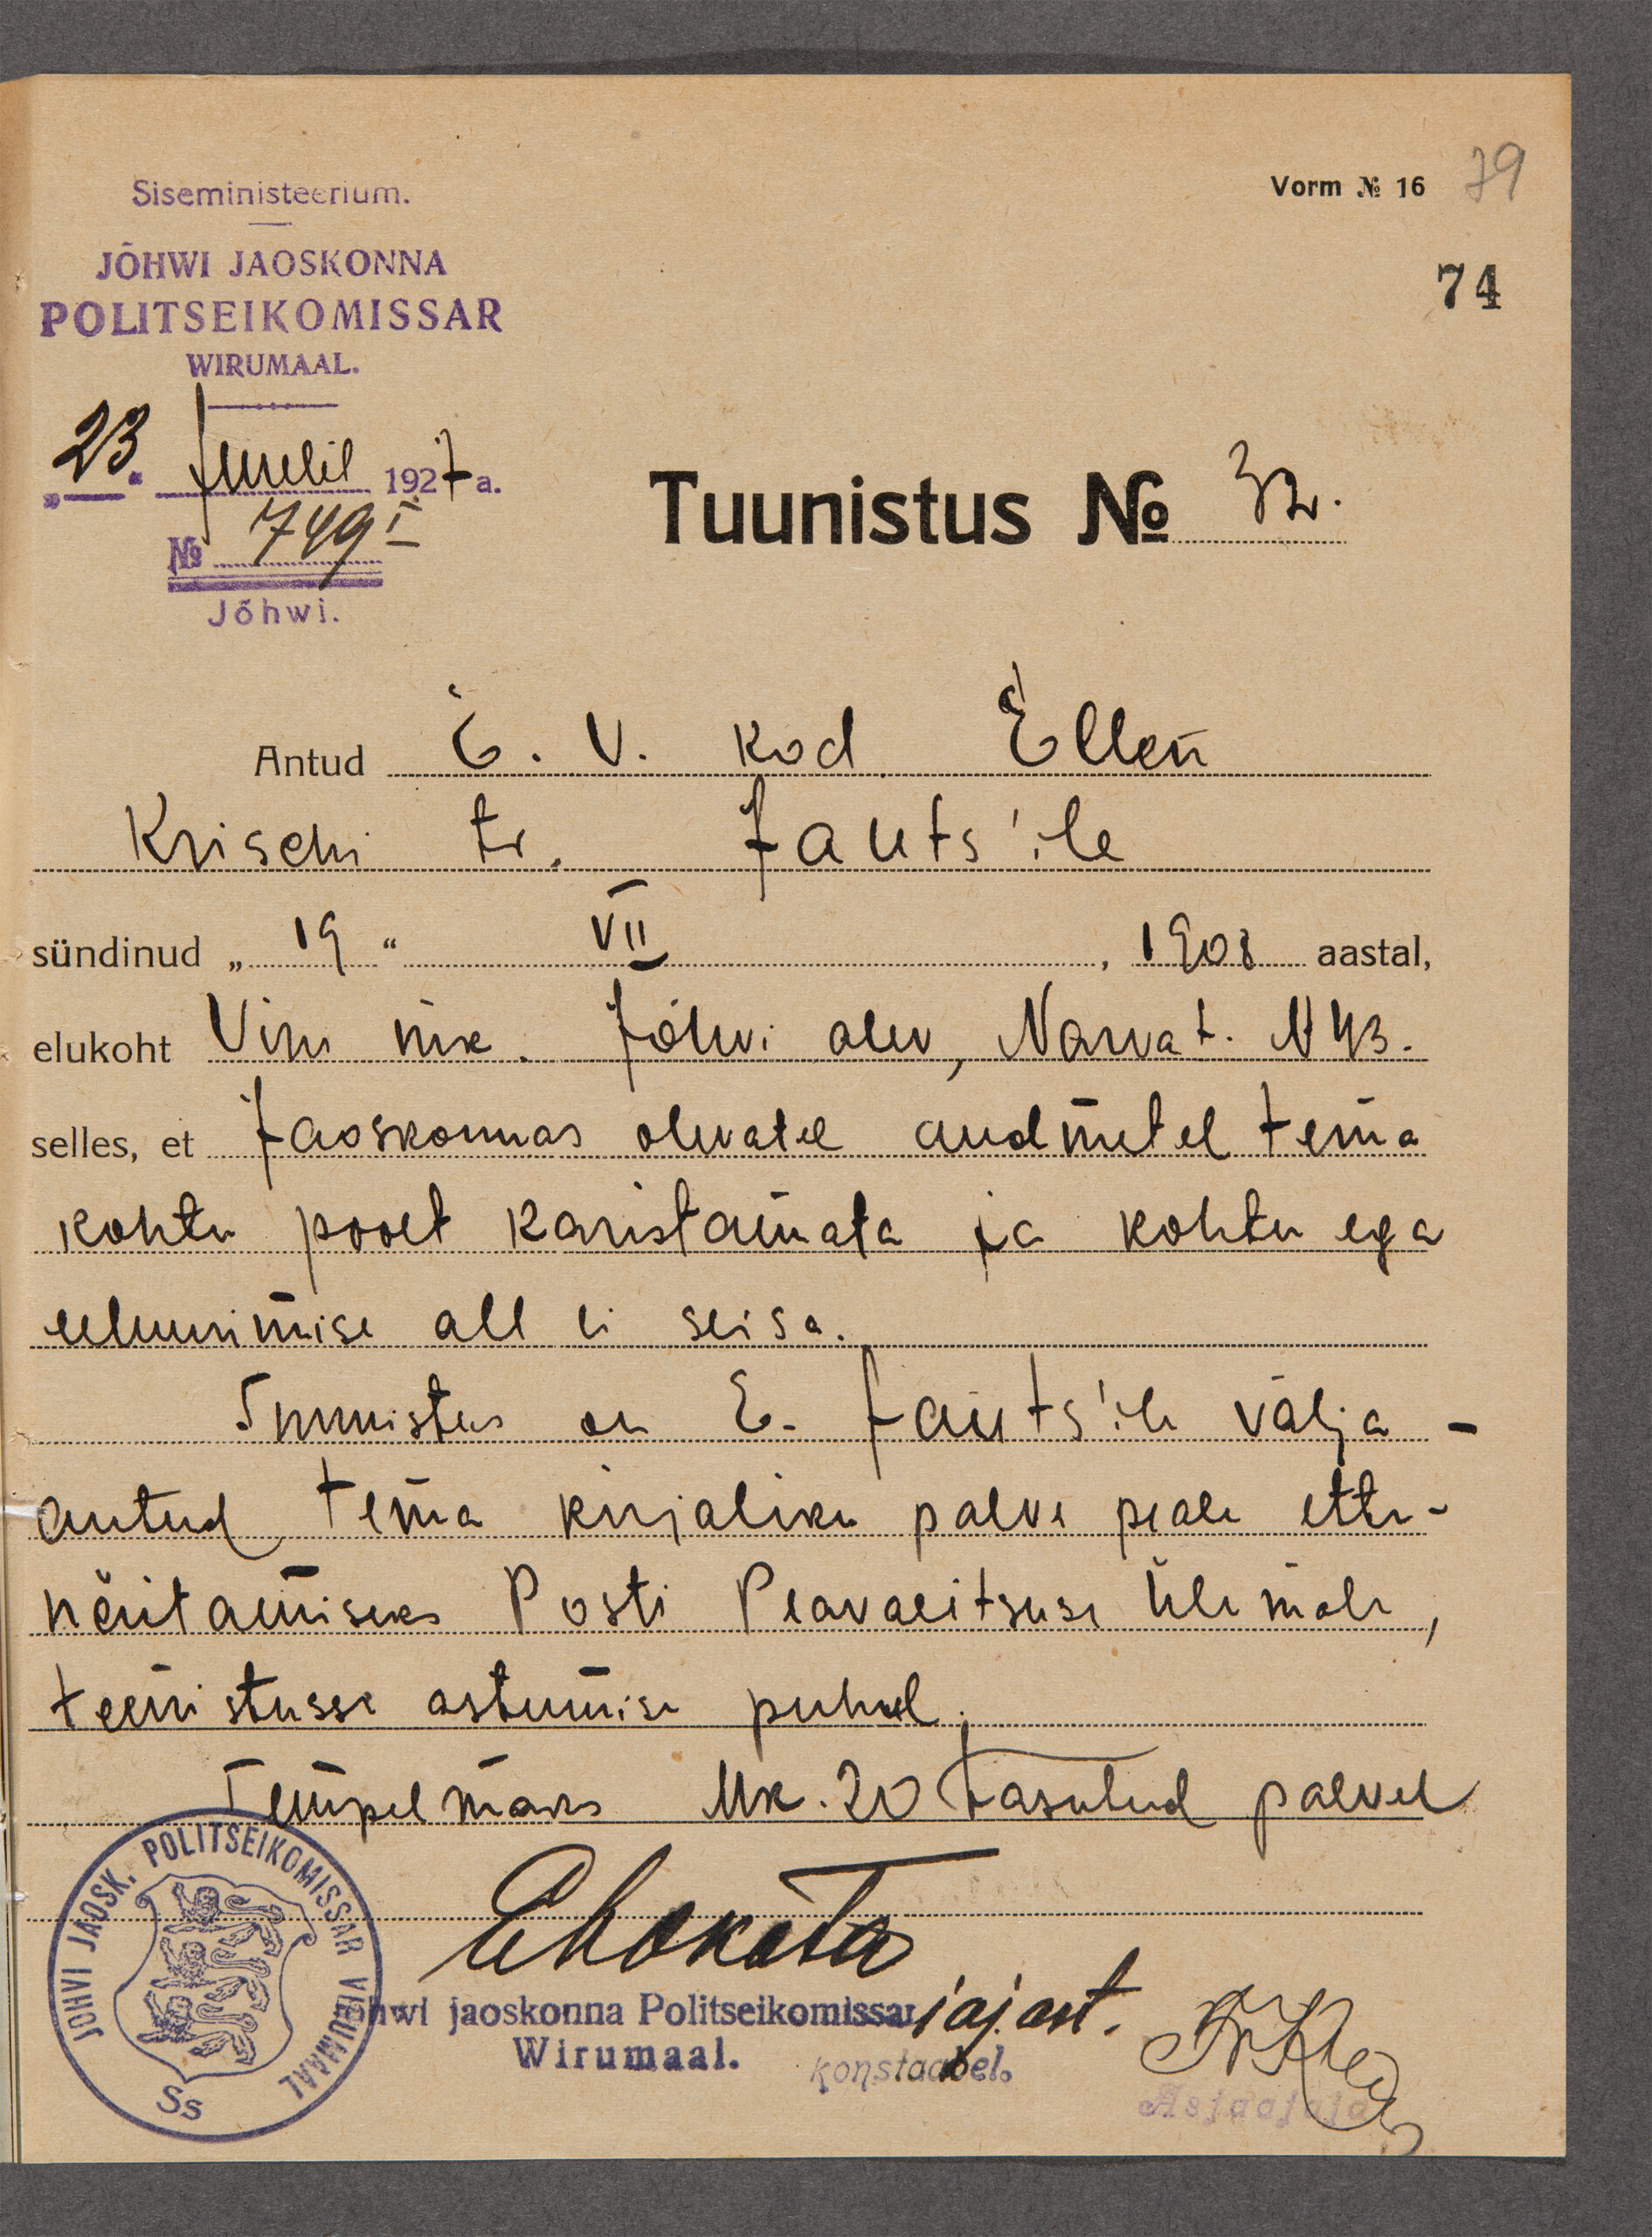 Siseministeerium.
Vorm № 16
79
JÕHWI JAOSKONNA
POLITSEIKOMISSAR
WIRUMAAL.
74
„23.“ Juulil 1927 a.
№ 749 I
Jõhwi.
Tuunistus № 32.
Antud E. V. kod. Ellen
Krischi tr. Jauts'ile
sündinud „ 19 “ VII , 1908 aastal,
elukoht Viru mk. Jõhvi alev, Narva t. N 43.
selles, et Jaoskonnas olevatel andmetel tema
kohtu poolt karistamata ja kohtu ega
eeluurimise all ei seisa.
Tunnistus on E. Jauts'ile välja-
antud tema kirjaliku palve peale ette-
näitamiseks Posti Peavalitsuse Ülemale,
teenistusse astumise puhul.
Tempelmaks Mk. 20 tasutud palvel
JÕHVI JAOSK. POLITSEIKOMISSAR VIRUMAAL
Ss
Jõhwi jaoskonna Politseikomissari aj. ast.
Wirumaal.
konstaabel.
Asjaajaja